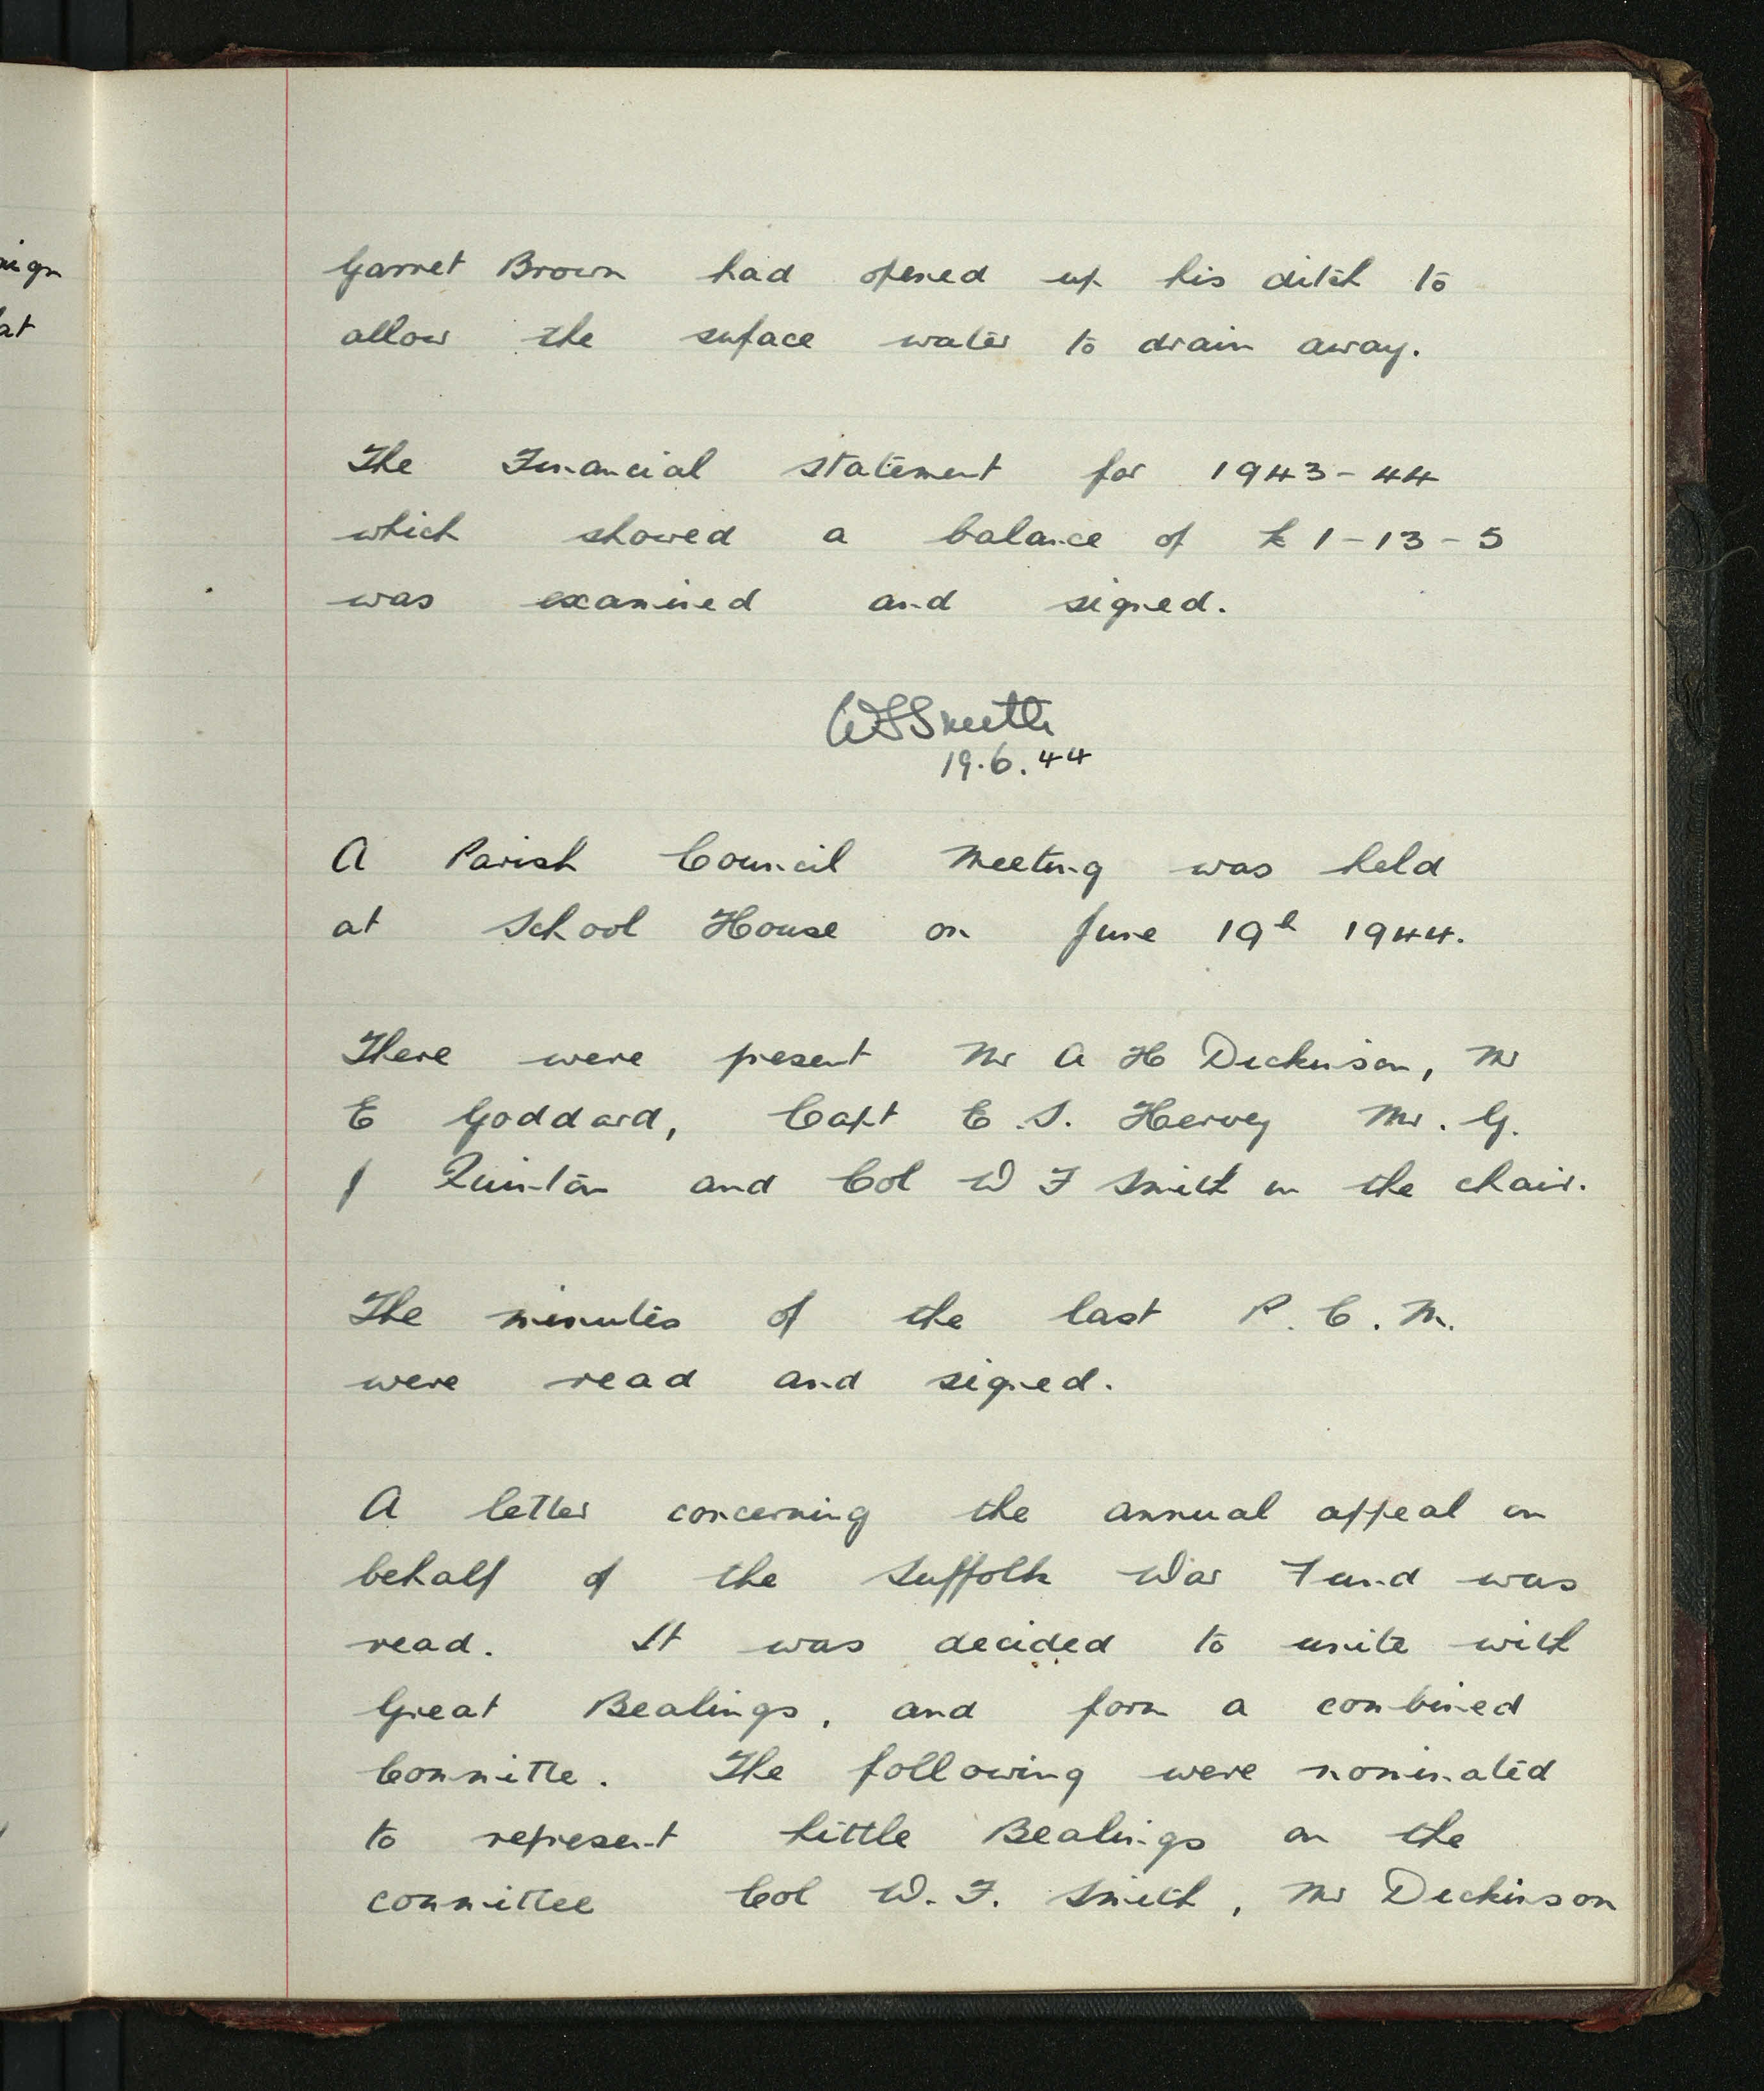 Garret Brown had opened up his ditch to
allow the suface water to drain away.
The Financial statement for 1943-44
which showed a balance of £1-13-5
was examined and signed.
WFSmith
19.6.44
A Parish Council Meeting was held
at School House on June 19th 1944.
There were present Mr A H Dickinson, Mr
E Goddard, Capt E.S. Hervey Mr. G.
J Quinton and Col W F Smith in the chair.
The minutes of the last P.C.M.
were read and signed.
A letter concerning the annual appeal on
behalf of the Suffolk War Fund was
read. It was decided to unite with
Great Bealings, and form a combined
Committe. The following were nominated
to represent Little Bealings on the
committee Col W.F. Smith, Mr Dickinson